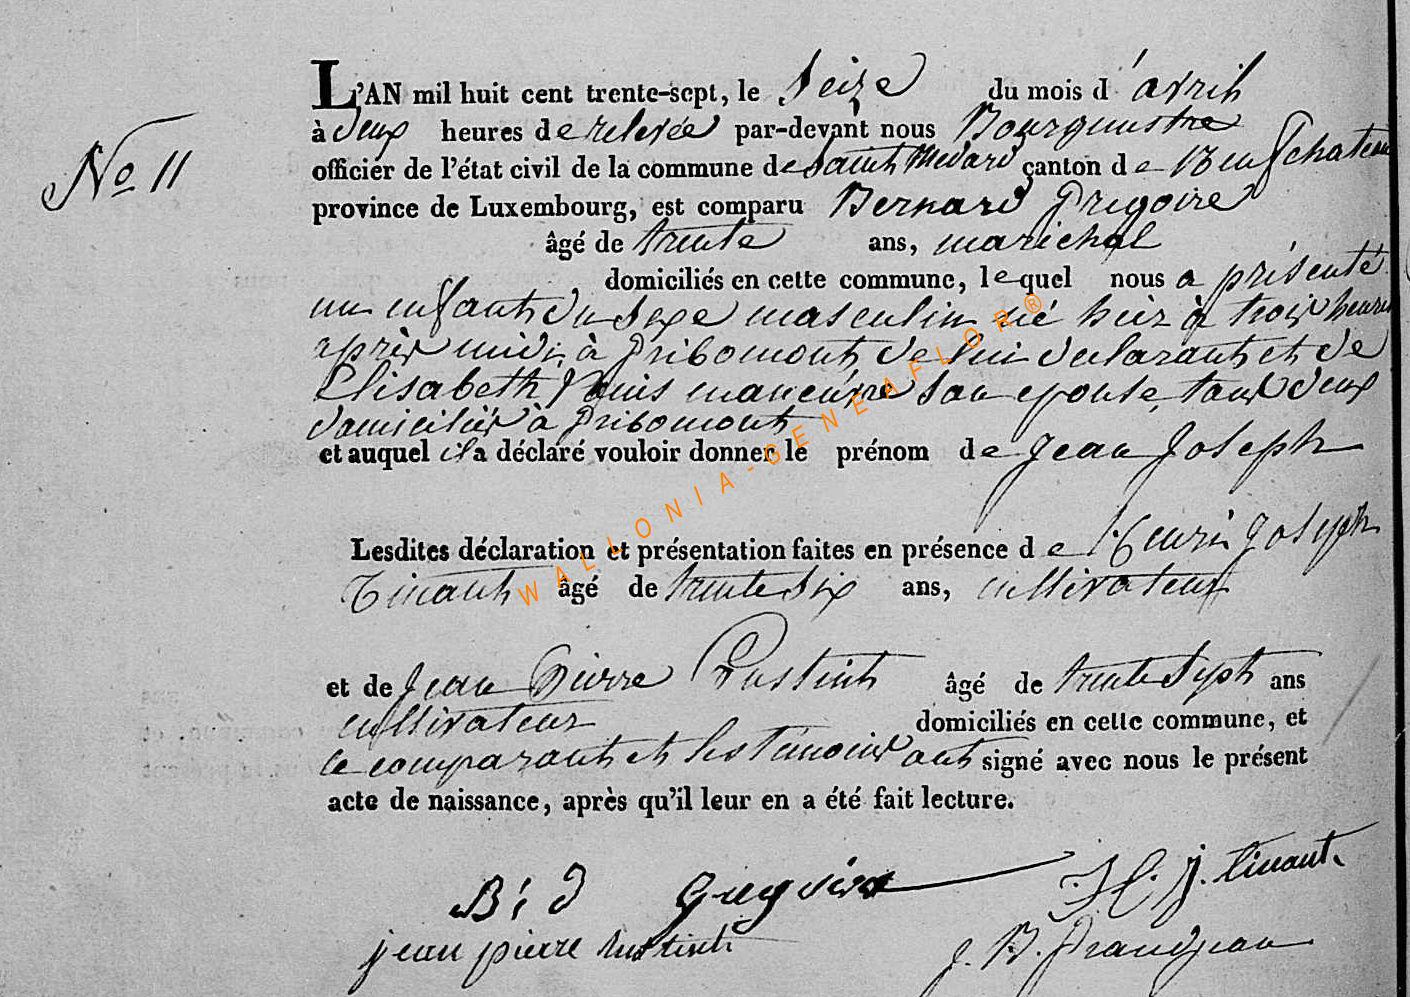 No 11
L'AN mil huit cent trente-sept, le Seize du mois d'avril
à deux heures de relevée par-devant nous Bourgumstre
officier de l'état civil de la commune de Saint Médard canton de Neufchateau
province de Luxembourg, est comparu Bernard Grégoire
âgé de trente ans, maréchal
domiciliés en cette commune, lequel nous a présenté
un enfant du sexe masculin né hier à trois heures
après midi, à Gribomont, de lui déclarant et de
Elisabeth manœuvre son épouse, tous deux
domiciliés à Gribomont
et auquel il a déclaré vouloir donner le prénom de Jean Joseph
Lesdites déclaration et présentation faites en présence de Henri Joseph
Tinant âgé de trente six ans, cultivateur
et de Jean Pierre âgé de trente sept ans
cultivateur domiciliés en cette commune, et
le comparant et les témoins ont signé avec nous le présent
acte de naissance, après qu'il leur en a été fait lecture.
B; d Gregoire H. J. tinant
jean pierre
J. B. Grandjean
WALLONIA-GENEAFLOR®